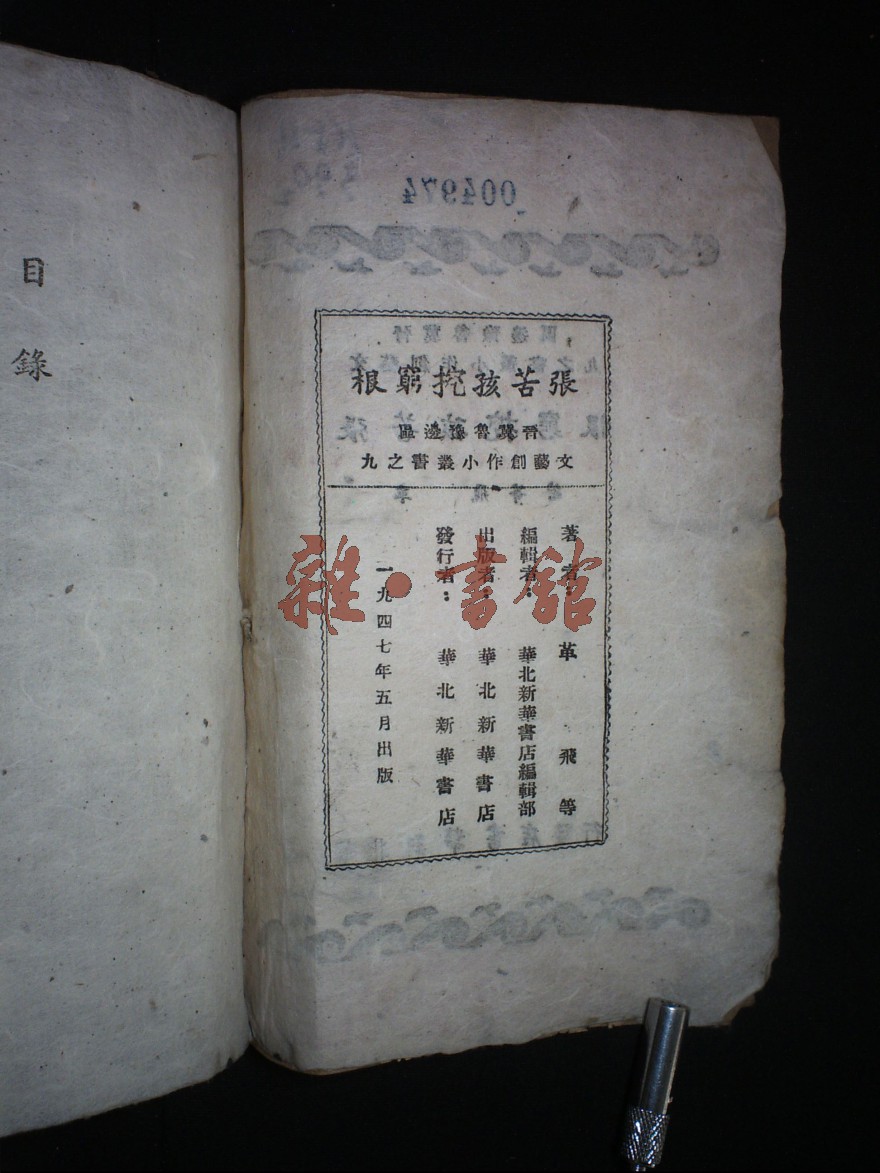 目錄
張苦孩挖窮根
晉冀魯豫邊區
文藝創作小叢書之九
著者：革飛等
編輯者：華北新華書店編輯部
出版者：華北新華書店
發行者：華北新華書店
一九四七年五月出版
雜·書館